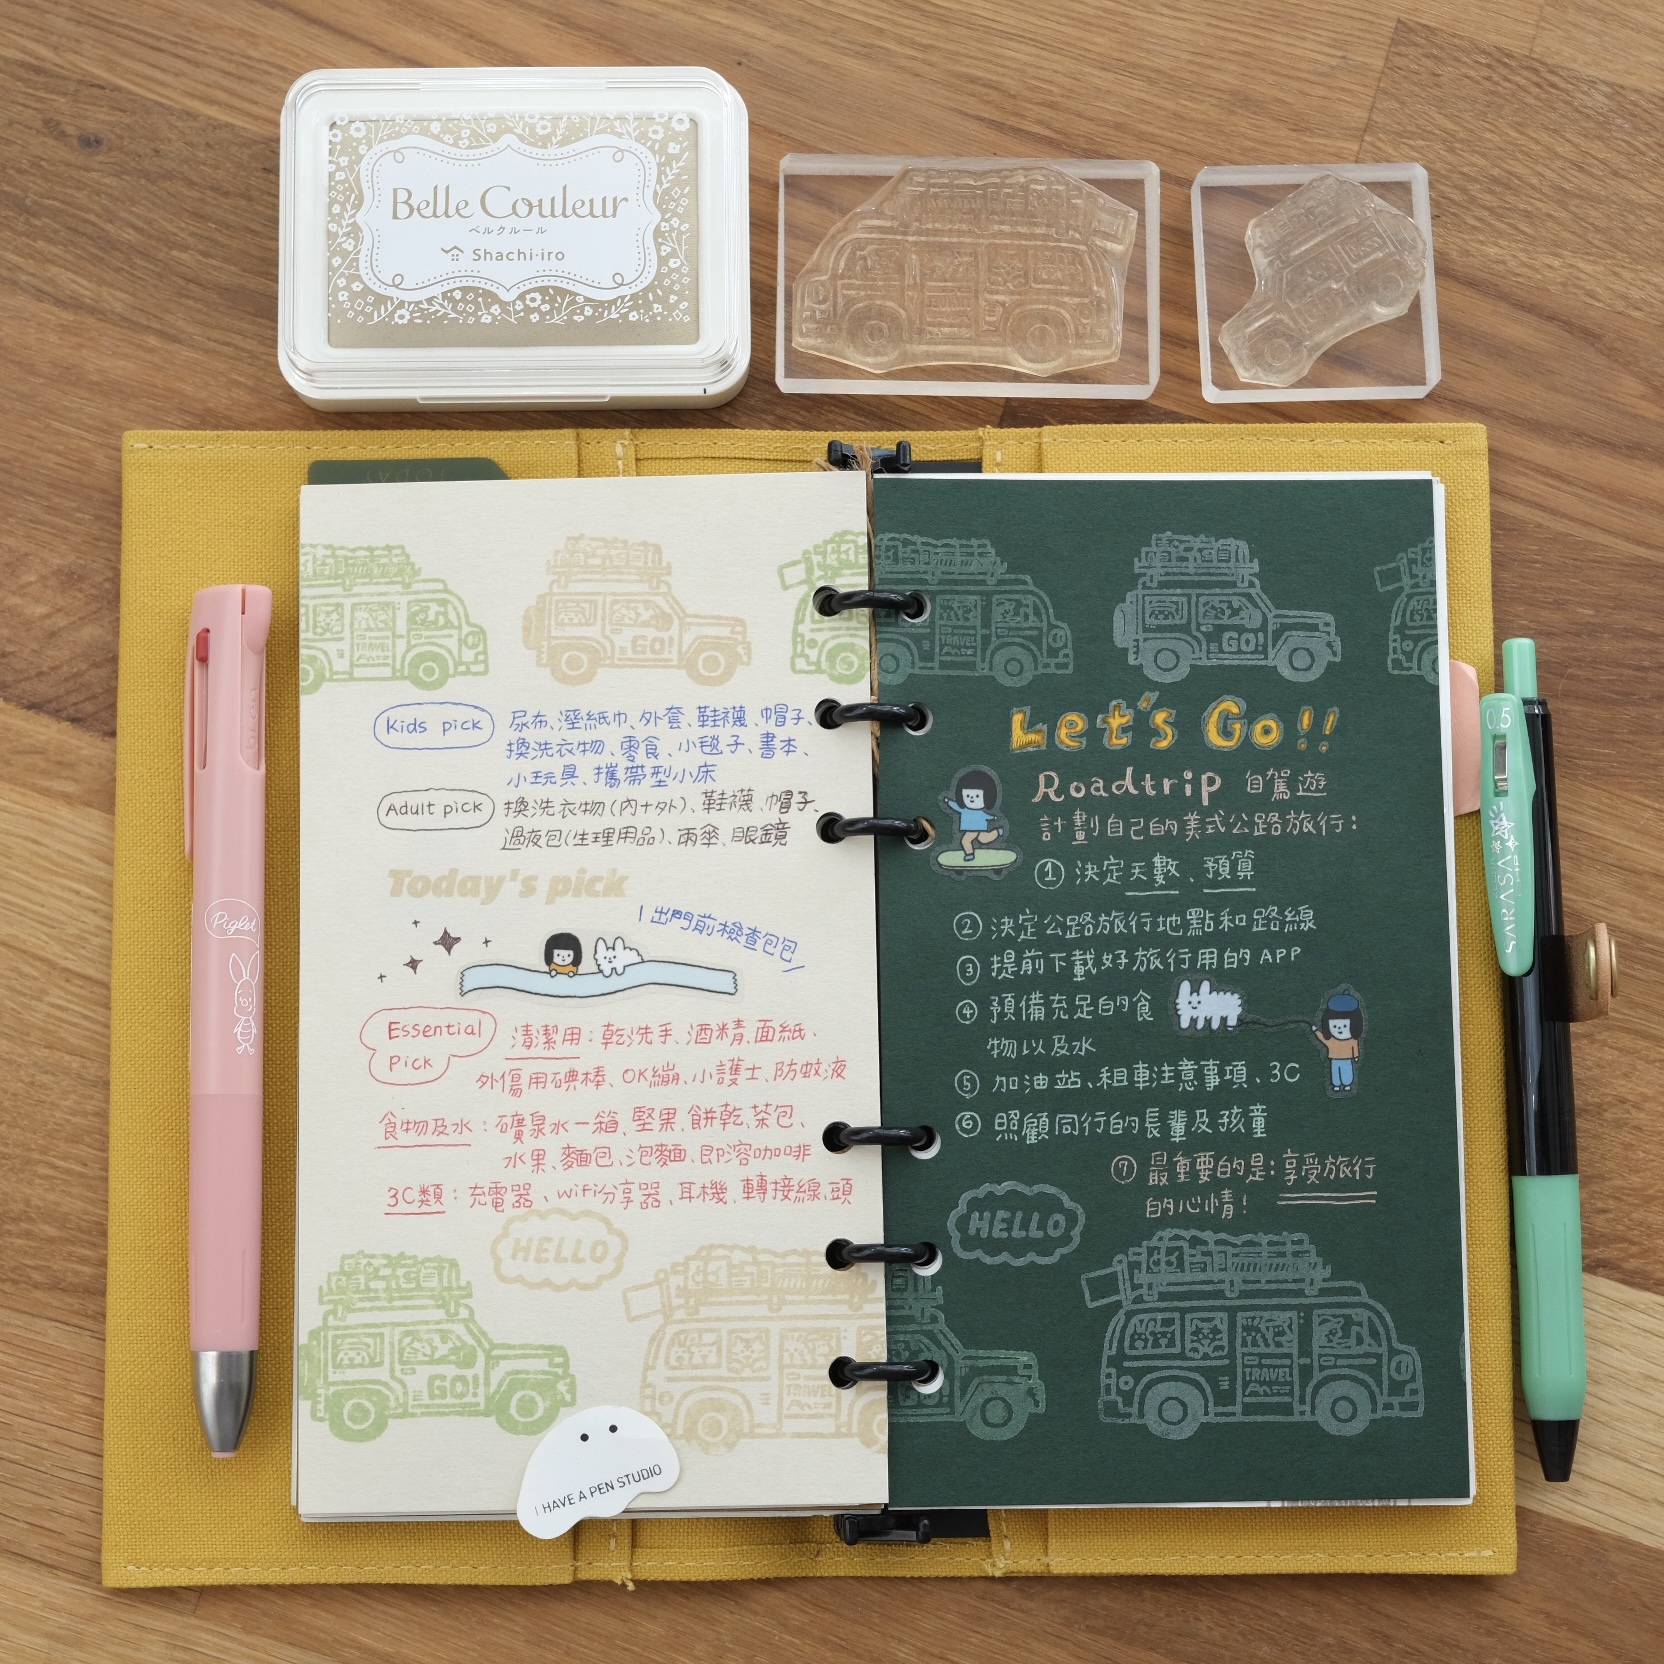 Belle Couleur
ベルクルール
Shachi-iro
TRAVEL
GO!
Kids pick
尿布、溼紙巾、外套、鞋襪、帽子、
換洗衣物、零食、小毯子、書本、
小玩具、攜帶型小床
Adult pick
換洗衣物(內+外)、鞋襪、帽子、
過夜包(生理用品)、雨傘、眼鏡
Today's pick
\出門前檢查包包/
Essential
Pick
清潔用：乾洗手、酒精、面紙、
外傷用碘棒、OK繃、小護士、防蚊液
食物及水：礦泉水一箱、堅果、餅乾、茶包、
水果、麵包、泡麵、即溶咖啡
3C類：充電器、wifi分享器、耳機、轉接線、頭
HELLO
GO!
TRAVEL
I HAVE A PEN STUDIO
TRAVEL
GO!
Let's Go!!
Roadtrip 自駕遊
計劃自己的美式公路旅行：
① 決定天數、預算
② 決定公路旅行地點和路線
③ 提前下載好旅行用的APP
④ 預備充足的食
物以及水
⑤ 加油站、租車注意事項、3C
⑥ 照顧同行的長輩及孩童
⑦ 最重要的是：享受旅行
的心情！
HELLO
TRAVEL
Piglet
0.5
SARASA